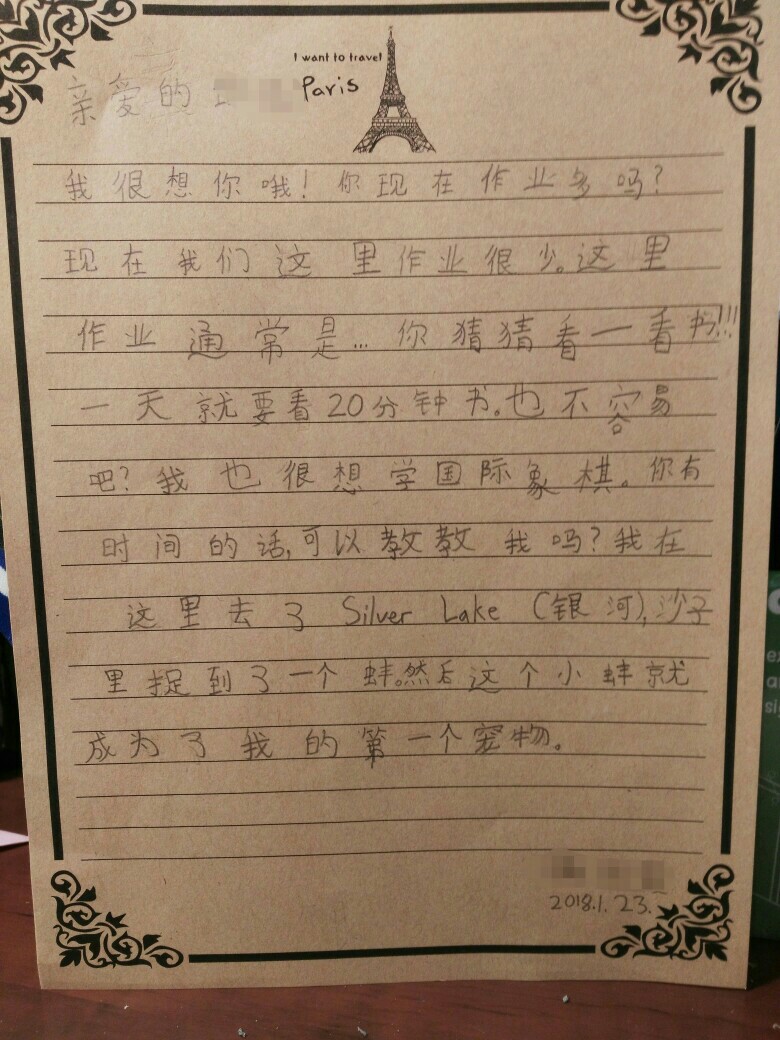 I want to travel
Paris
亲爱的
我很想你哦！你现在作业多吗？
现在我们这里作业很少。这里
作业通常是…你猜猜看一看书!!!
一天就要看20分钟书。也不容易
吧？我也很想学国际象棋。你有
时间的话，可以教教我吗？我在
这里去了 Silver Lake (银河)，沙子
里捉到了一个蚌。然后这个小蚌就
成为了我的第一个宠物。
2018.1.23.